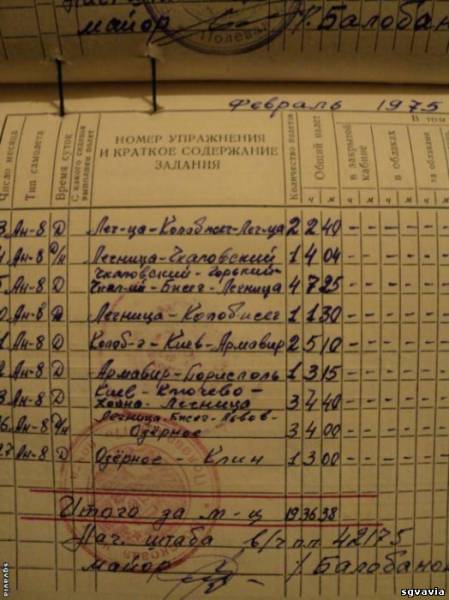 майор /. Балобанов
Февраль 1975
В том
Число месяца
Тип самолета
Время суток
С какого сиденья выполнял полет
НОМЕР УПРАЖНЕНИЯ
И КРАТКОЕ СОДЕРЖАНИЕ
ЗАДАНИЯ
Количество полетов
Общий налет
в закрытой кабине
в облаках
за облаками
ч м ч м ч м ч
3. Ан-8 Д Лег-ца-Колобжег-Лег-ца 2 2 40 - - - - - -
Ан-8 Д/н Легница-Чкаловский 1 4 04 - - - - - -
Чкаловский-Горький-
5. Ан-8 Д Чкал-ий-Бжег-Легница 4 7 25 - - - - - -
0. Ан-8 Д Легница-Колобжег 1 1 30 - - - - - -
1. Ан-8 Д Колоб-г-Киев-Армавир 2 5 10 - - - - - -
2. Ан-8 Д Армавир-Борисполь 1 3 15 - - - - - -
Киев-Ключево-
3. Ан-8 Д Хойна-Легница 3 4 40 - - - - - -
Легница-Бжег-Львов-
26. Ан-8 Д/н Озёрное 3 4 00 - - - - - -
27. Ан-8 Д Озёрное - Клин 1 3 00 - - - - - -
Итого за м-ц 19 36 38
Нач. штаба в/ч пп 42175
майор /. Балобанов
sgvavia